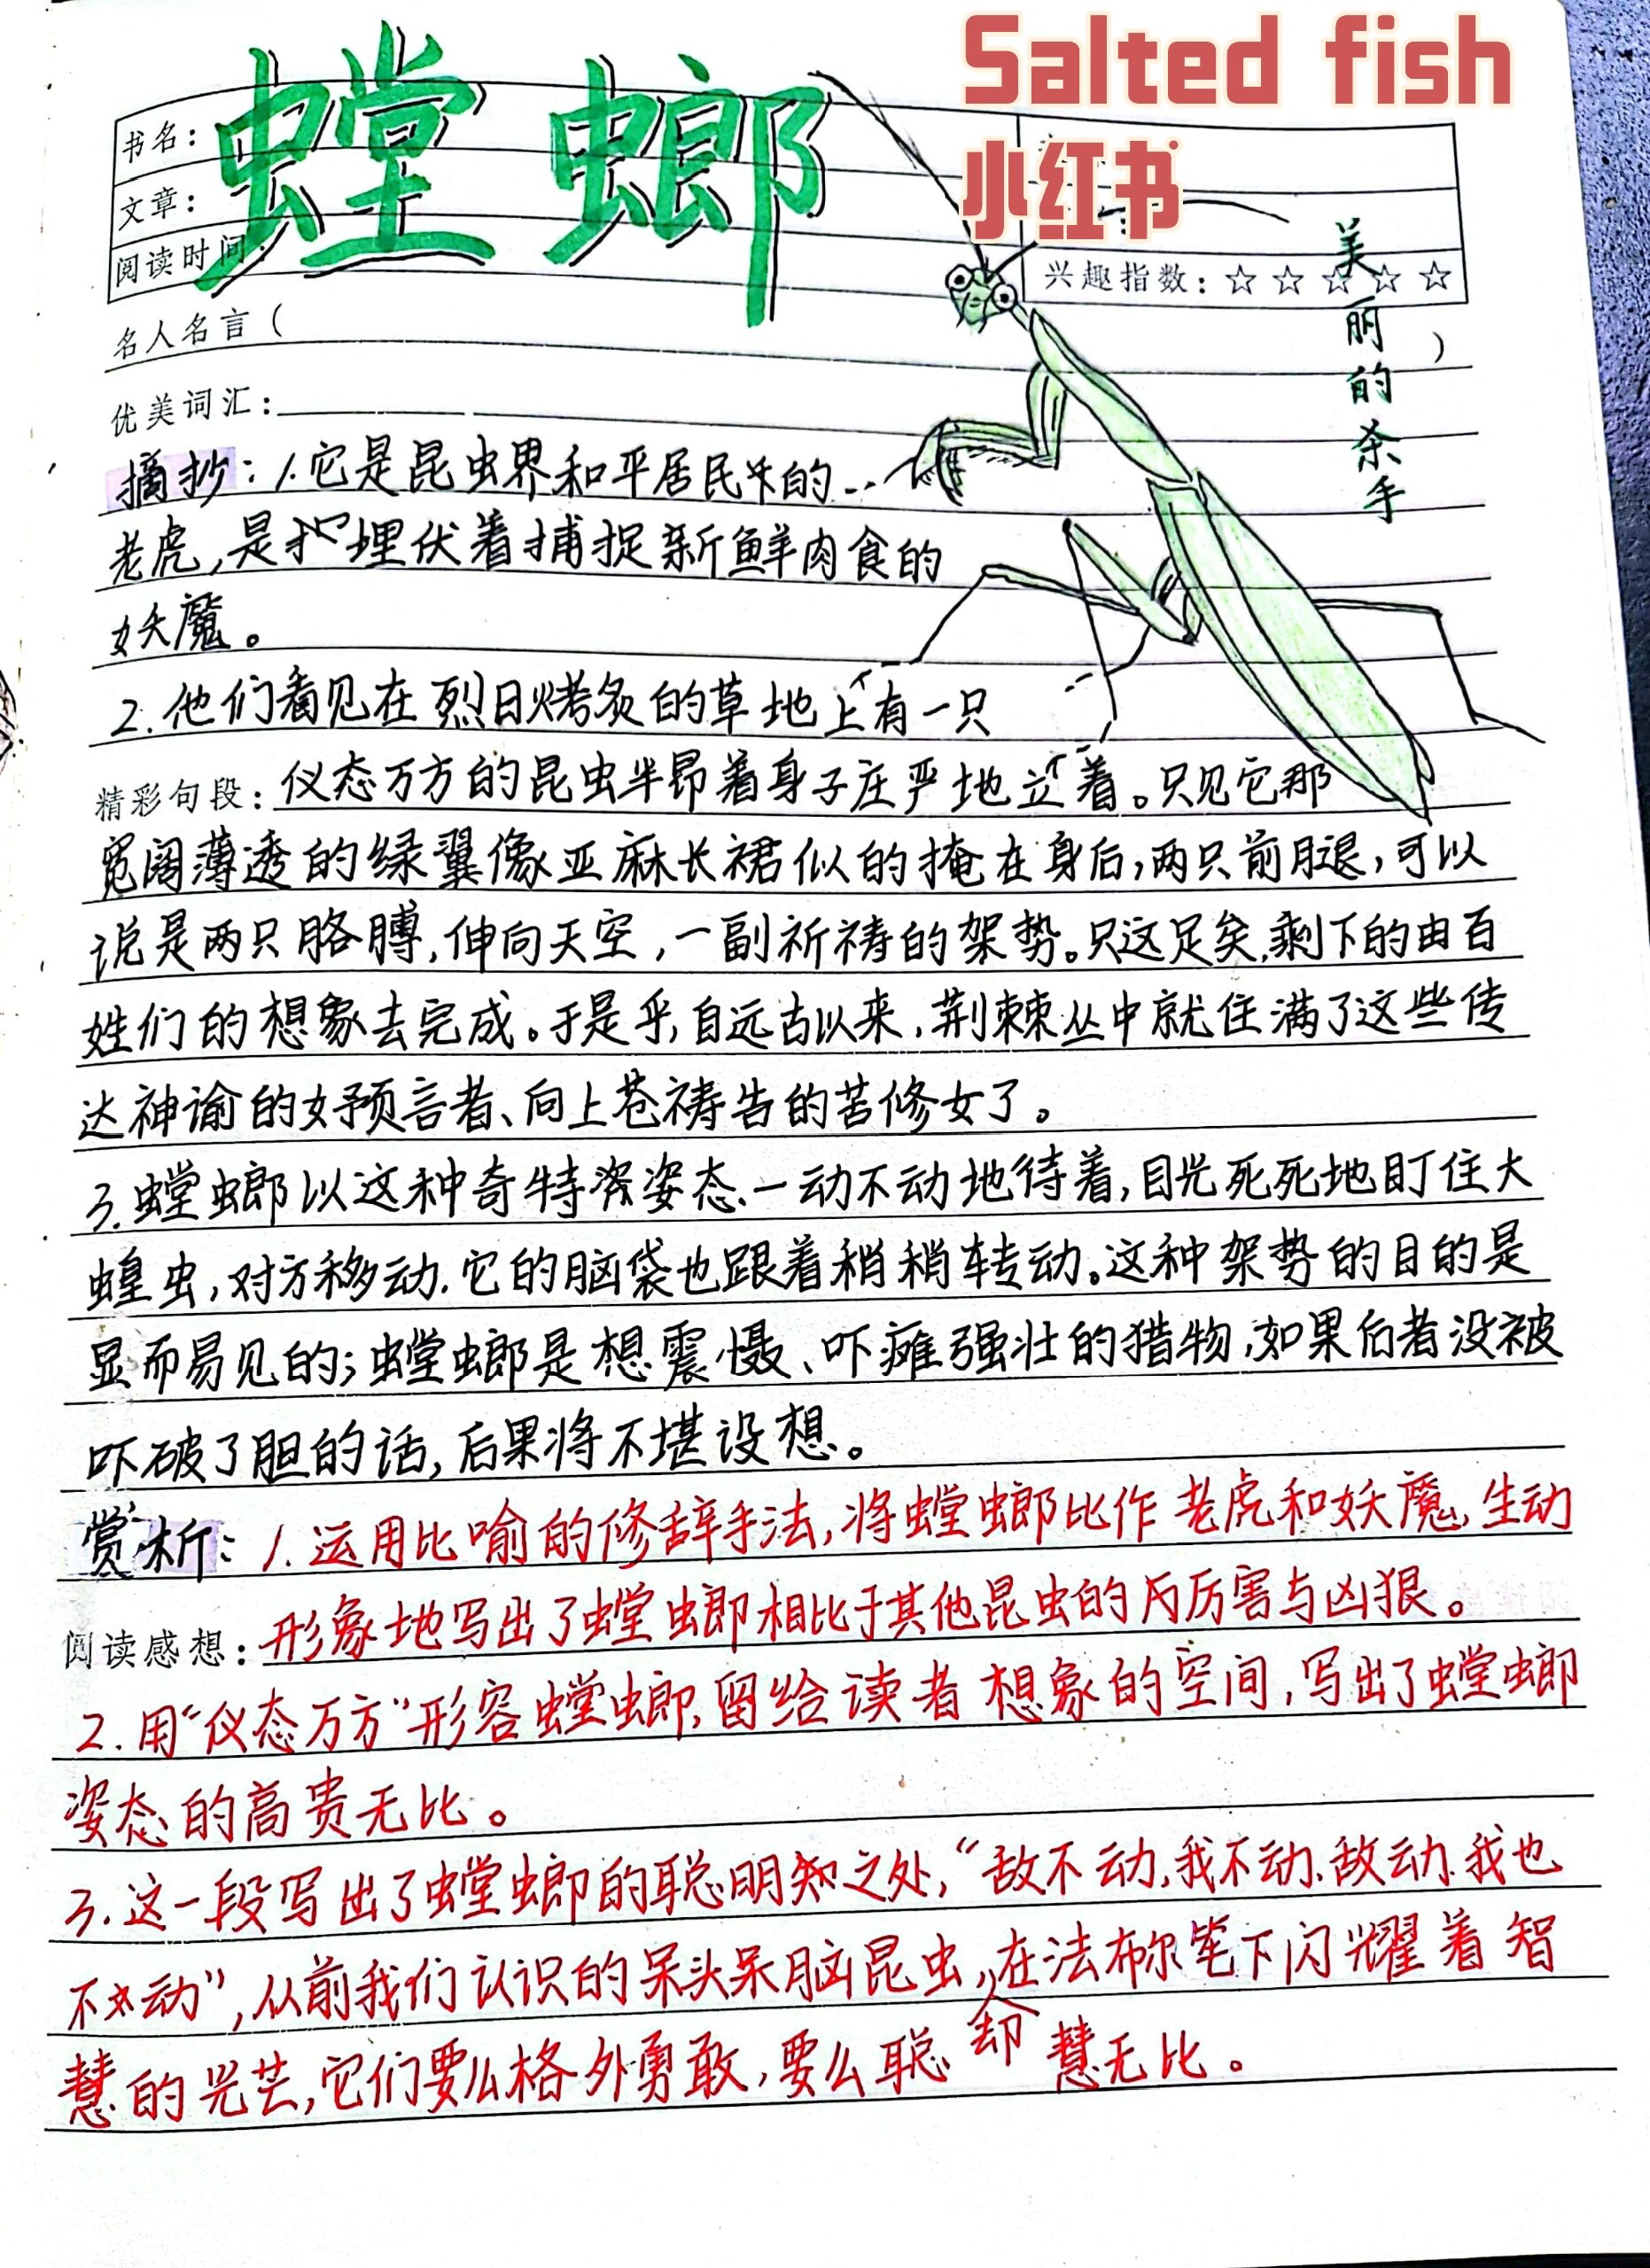 Salted fish
小红书
螳螂
书名：
文章：
阅读时间：
兴趣指数：☆ ☆ ☆ ☆ ☆
美丽的杀手
名人名言（ ）
优美词汇：
摘抄：1.它是昆虫界和平居民的
老虎，是埋伏着捕捉新鲜肉食的
妖魔。
2.他们看见在烈日烤炙的草地上有一只
精彩句段：仪态万方的昆虫半昂着身子庄严地立着。只见它那
宽阔薄透的绿翼像亚麻长裙似的掩在身后，两只前腿，可以
说是两只胳膊，伸向天空，一副祈祷的架势。只这足矣，剩下的由百
姓们的想象去完成。于是乎，自远古以来，荆棘丛中就住满了这些传
达神谕的女预言者、向上苍祷告的苦修女了。
3.螳螂以这种奇特姿态、一动不动地待着，目光死死地盯住大
蝗虫，对方移动，它的脑袋也跟着稍稍转动。这种架势的目的是
显而易见的；螳螂是想震慑、吓瘫强壮的猎物，如果后者没被
吓破了胆的话，后果将不堪设想。
赏析：1.运用比喻的修辞手法，将螳螂比作老虎和妖魔，生动
阅读感想：形象地写出了螳螂相比于其他昆虫的厉害与凶狠。
2.用“仪态万方”形容螳螂，留给读者想象的空间，写出了螳螂
姿态的高贵无比。
3.这一段写出了螳螂的聪明知之处，“敌不动，我不动、敌动、我也
不动”，从前我们认识的呆头呆脑昆虫，在法布尔笔下却闪耀着智
慧的光芒，它们要么格外勇敢，要么聪慧无比。